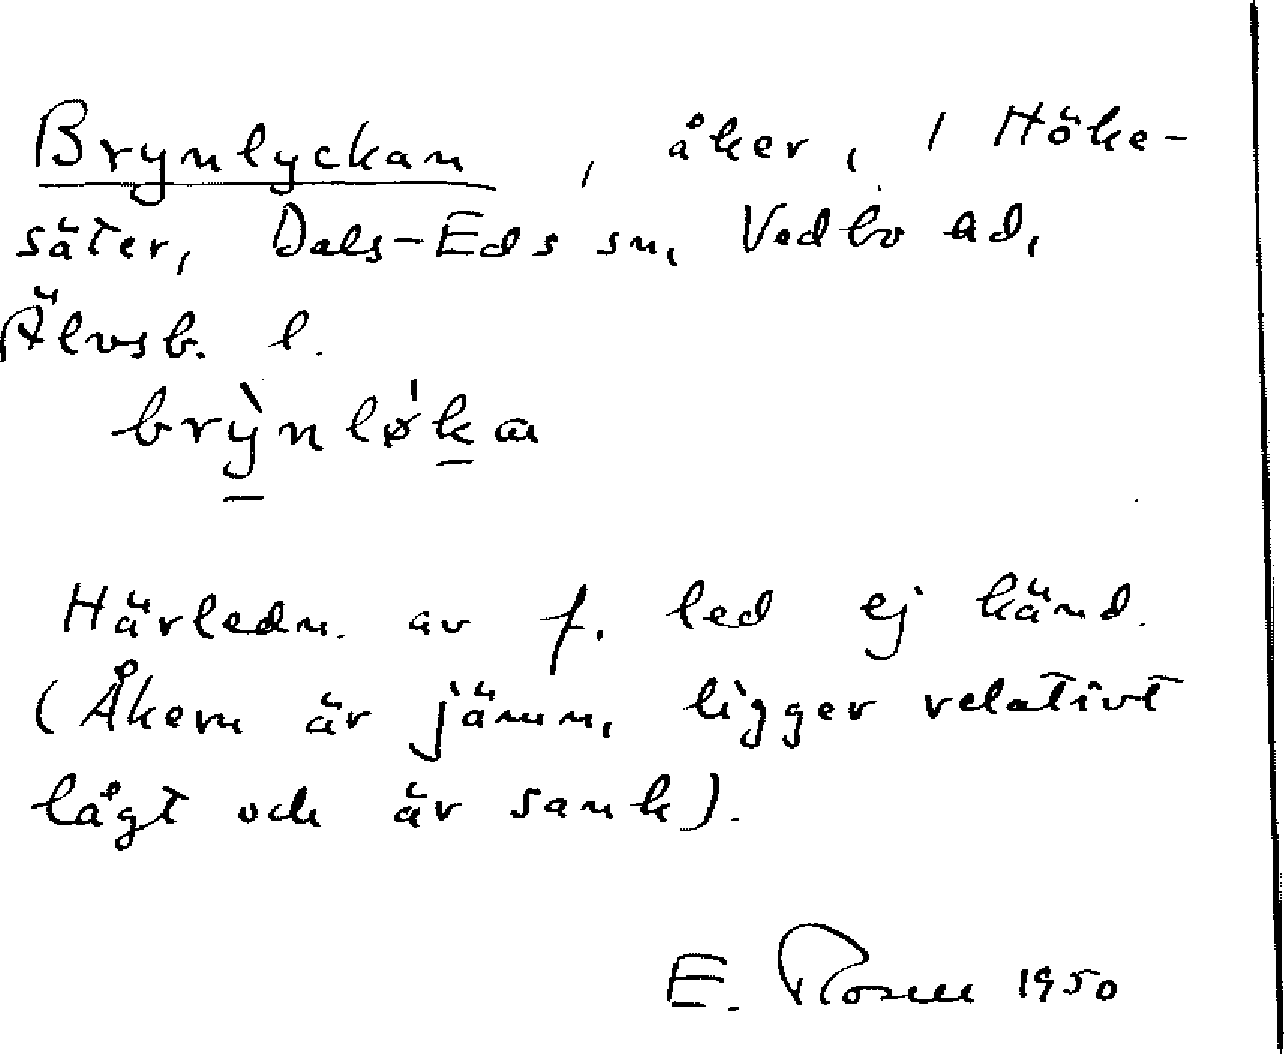 Brynlyckan, åker, 1 Höke-
säter, Dals-Eds sn, Vedbo hd,
Älvsb. l.
brỳnlø'ka
Härledn. av f. led ej känd.
(Åkern är jämn, ligger relativt
lågt och är sank).
E. Rosell 1950